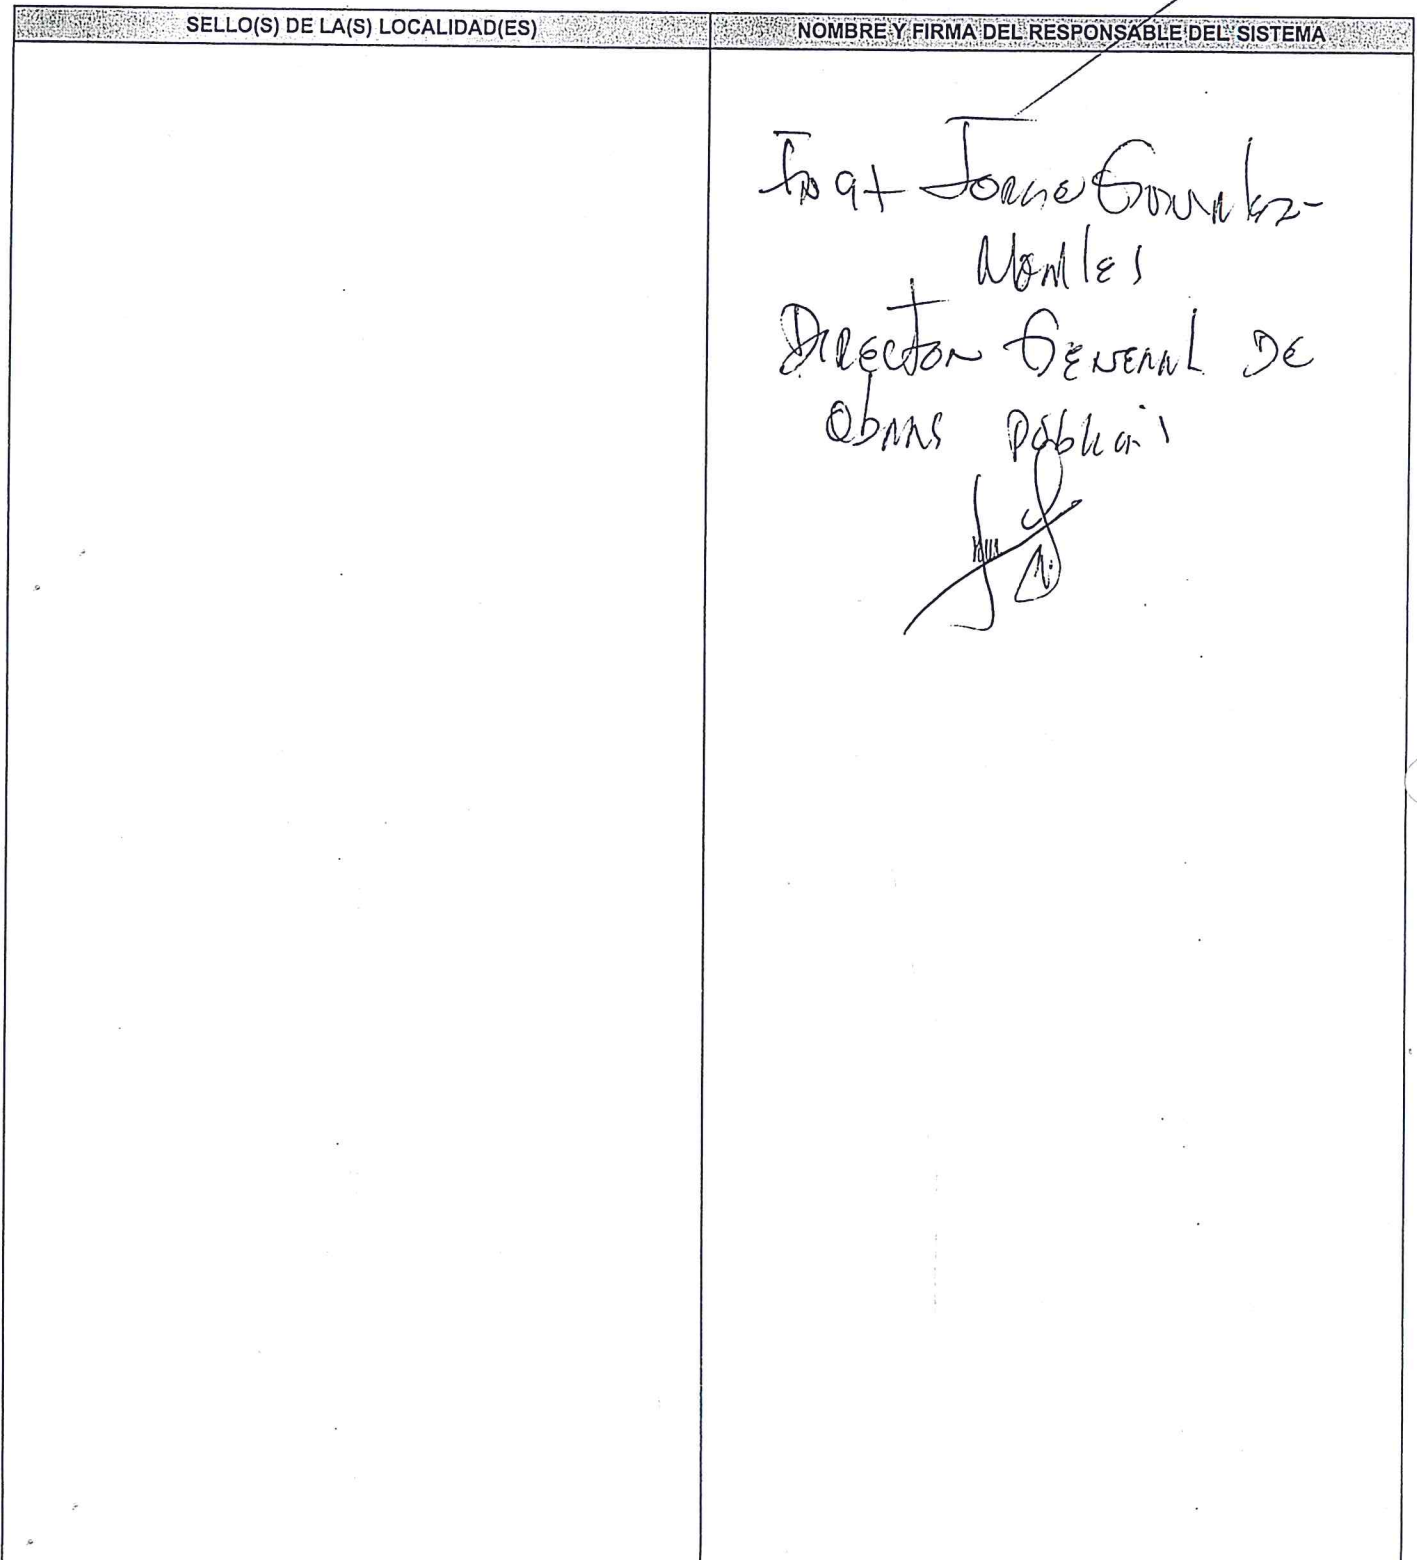 SELLO(S) DE LA(S) LOCALIDAD(ES)
NOMBRE Y FIRMA DEL RESPONSABLE DEL SISTEMA
Jorge González
Morales
DIRECTOR GENERAL DE
Obras Públicas